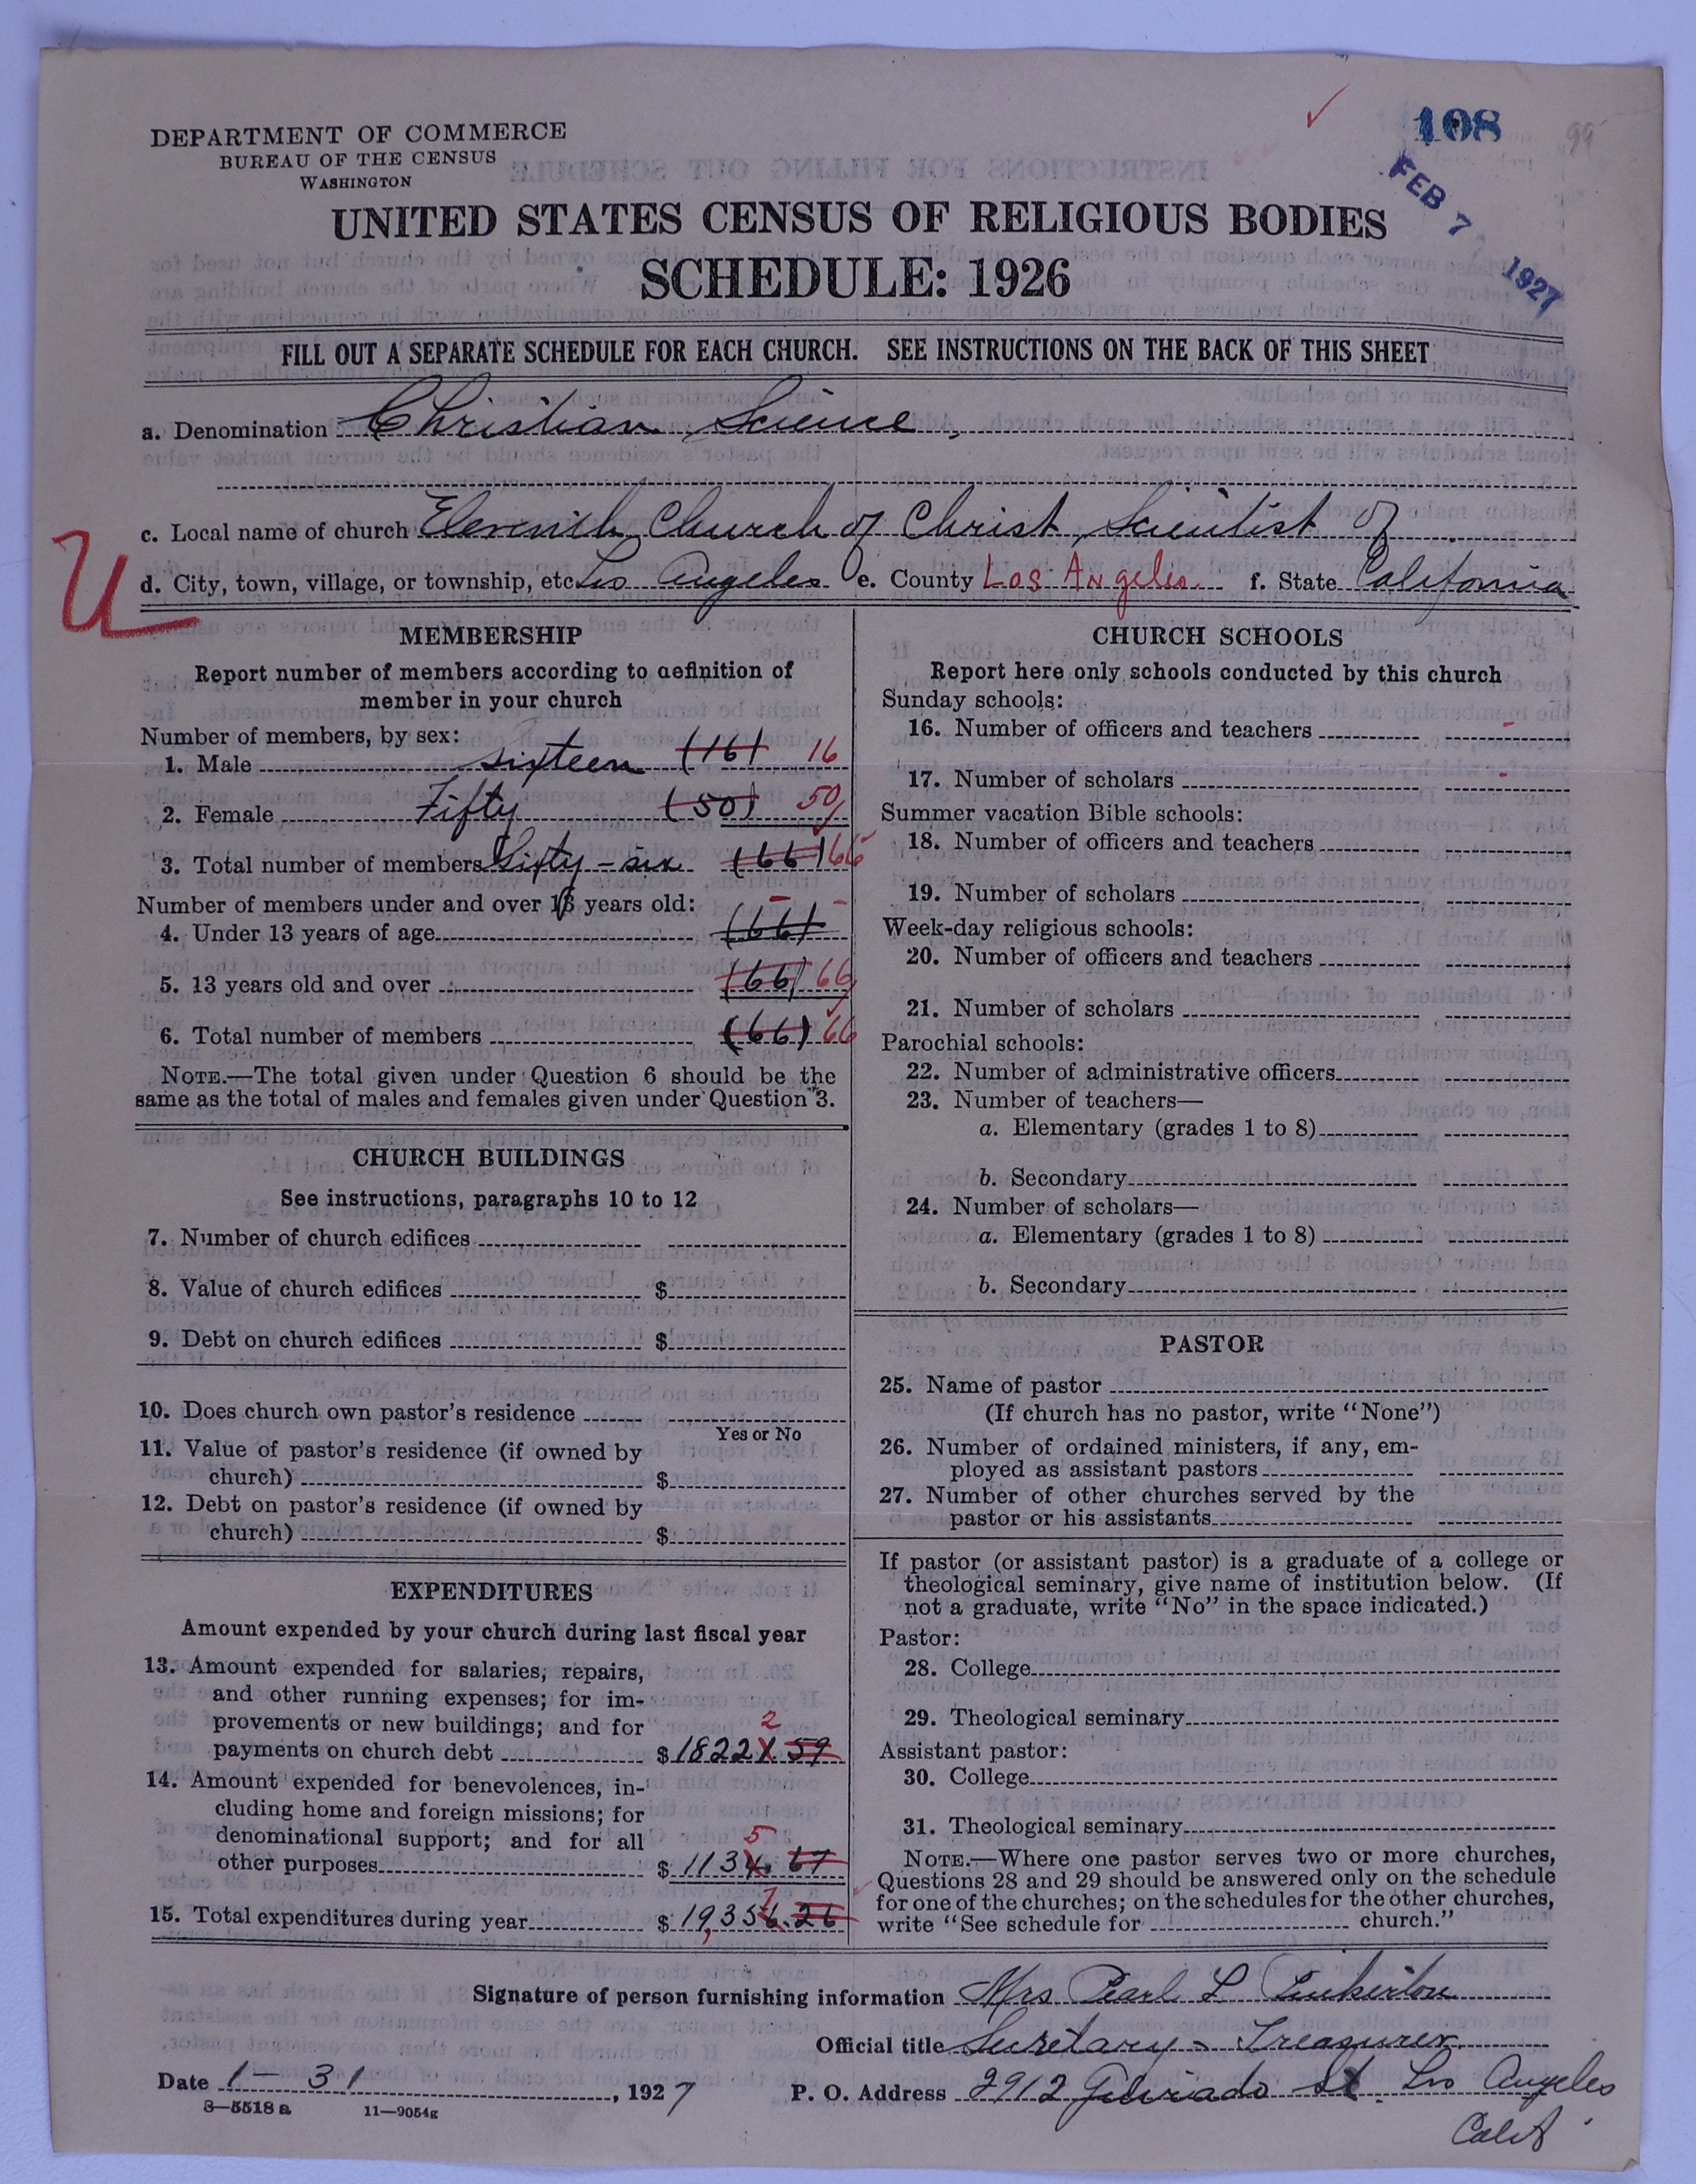 108
99
FEB 7 1927
DEPARTMENT OF COMMERCE
BUREAU OF THE CENSUS
WASHINGTON
UNITED STATES CENSUS OF RELIGIOUS BODIES
SCHEDULE: 1926
FILL OUT A SEPARATE SCHEDULE FOR EACH CHURCH. SEE INSTRUCTIONS ON THE BACK OF THIS SHEET
a. Denomination Christian Science,
c. Local name of church Eleventh Church of Christ, Scientist of
U
d. City, town, village, or township, etc. Los Angeles e. County Los Angeles f. State California
MEMBERSHIP
Report number of members according to definition of
member in your church
Number of members, by sex:
1. Male sixteen (16) 16
2. Female Fifty (50) 50
3. Total number of members Sixty-six (66) 66
Number of members under and over 13 years old:
4. Under 13 years of age (66) -
5. 13 years old and over (66) 66
6. Total number of members (66) 66
NOTE.—The total given under Question 6 should be the
same as the total of males and females given under Question 3.
CHURCH BUILDINGS
See instructions, paragraphs 10 to 12
7. Number of church edifices
8. Value of church edifices $
9. Debt on church edifices $
10. Does church own pastor's residence
Yes or No
11. Value of pastor's residence (if owned by
church) $
12. Debt on pastor's residence (if owned by
church) $
EXPENDITURES
Amount expended by your church during last fiscal year
13. Amount expended for salaries, repairs,
and other running expenses; for im-
provements or new buildings; and for
2
payments on church debt $18221.59
14. Amount expended for benevolences, in-
cluding home and foreign missions; for
denominational support; and for all
5
other purposes $1134.67
7
15. Total expenditures during year $19,356.26
CHURCH SCHOOLS
Report here only schools conducted by this church
Sunday schools:
16. Number of officers and teachers -
17. Number of scholars -
Summer vacation Bible schools:
18. Number of officers and teachers
19. Number of scholars
Week-day religious schools:
20. Number of officers and teachers
21. Number of scholars
Parochial schools:
22. Number of administrative officers
23. Number of teachers—
a. Elementary (grades 1 to 8)
b. Secondary
24. Number of scholars—
a. Elementary (grades 1 to 8)
b. Secondary
PASTOR
25. Name of pastor
(If church has no pastor, write "None")
26. Number of ordained ministers, if any, em-
ployed as assistant pastors
27. Number of other churches served by the
pastor or his assistants
If pastor (or assistant pastor) is a graduate of a college or
theological seminary, give name of institution below. (If
not a graduate, write "No" in the space indicated.)
Pastor:
28. College
29. Theological seminary
Assistant pastor:
30. College
31. Theological seminary
NOTE.—Where one pastor serves two or more churches,
Questions 28 and 29 should be answered only on the schedule
for one of the churches; on the schedules for the other churches,
write "See schedule for church."
Signature of person furnishing information Mrs Pearl L Pinkerton
Official title Secretary - Treasurer
Date 1-31, 1927 P. O. Address 2912 St. Los Angeles
Calif
8—5518 a 11—9054g